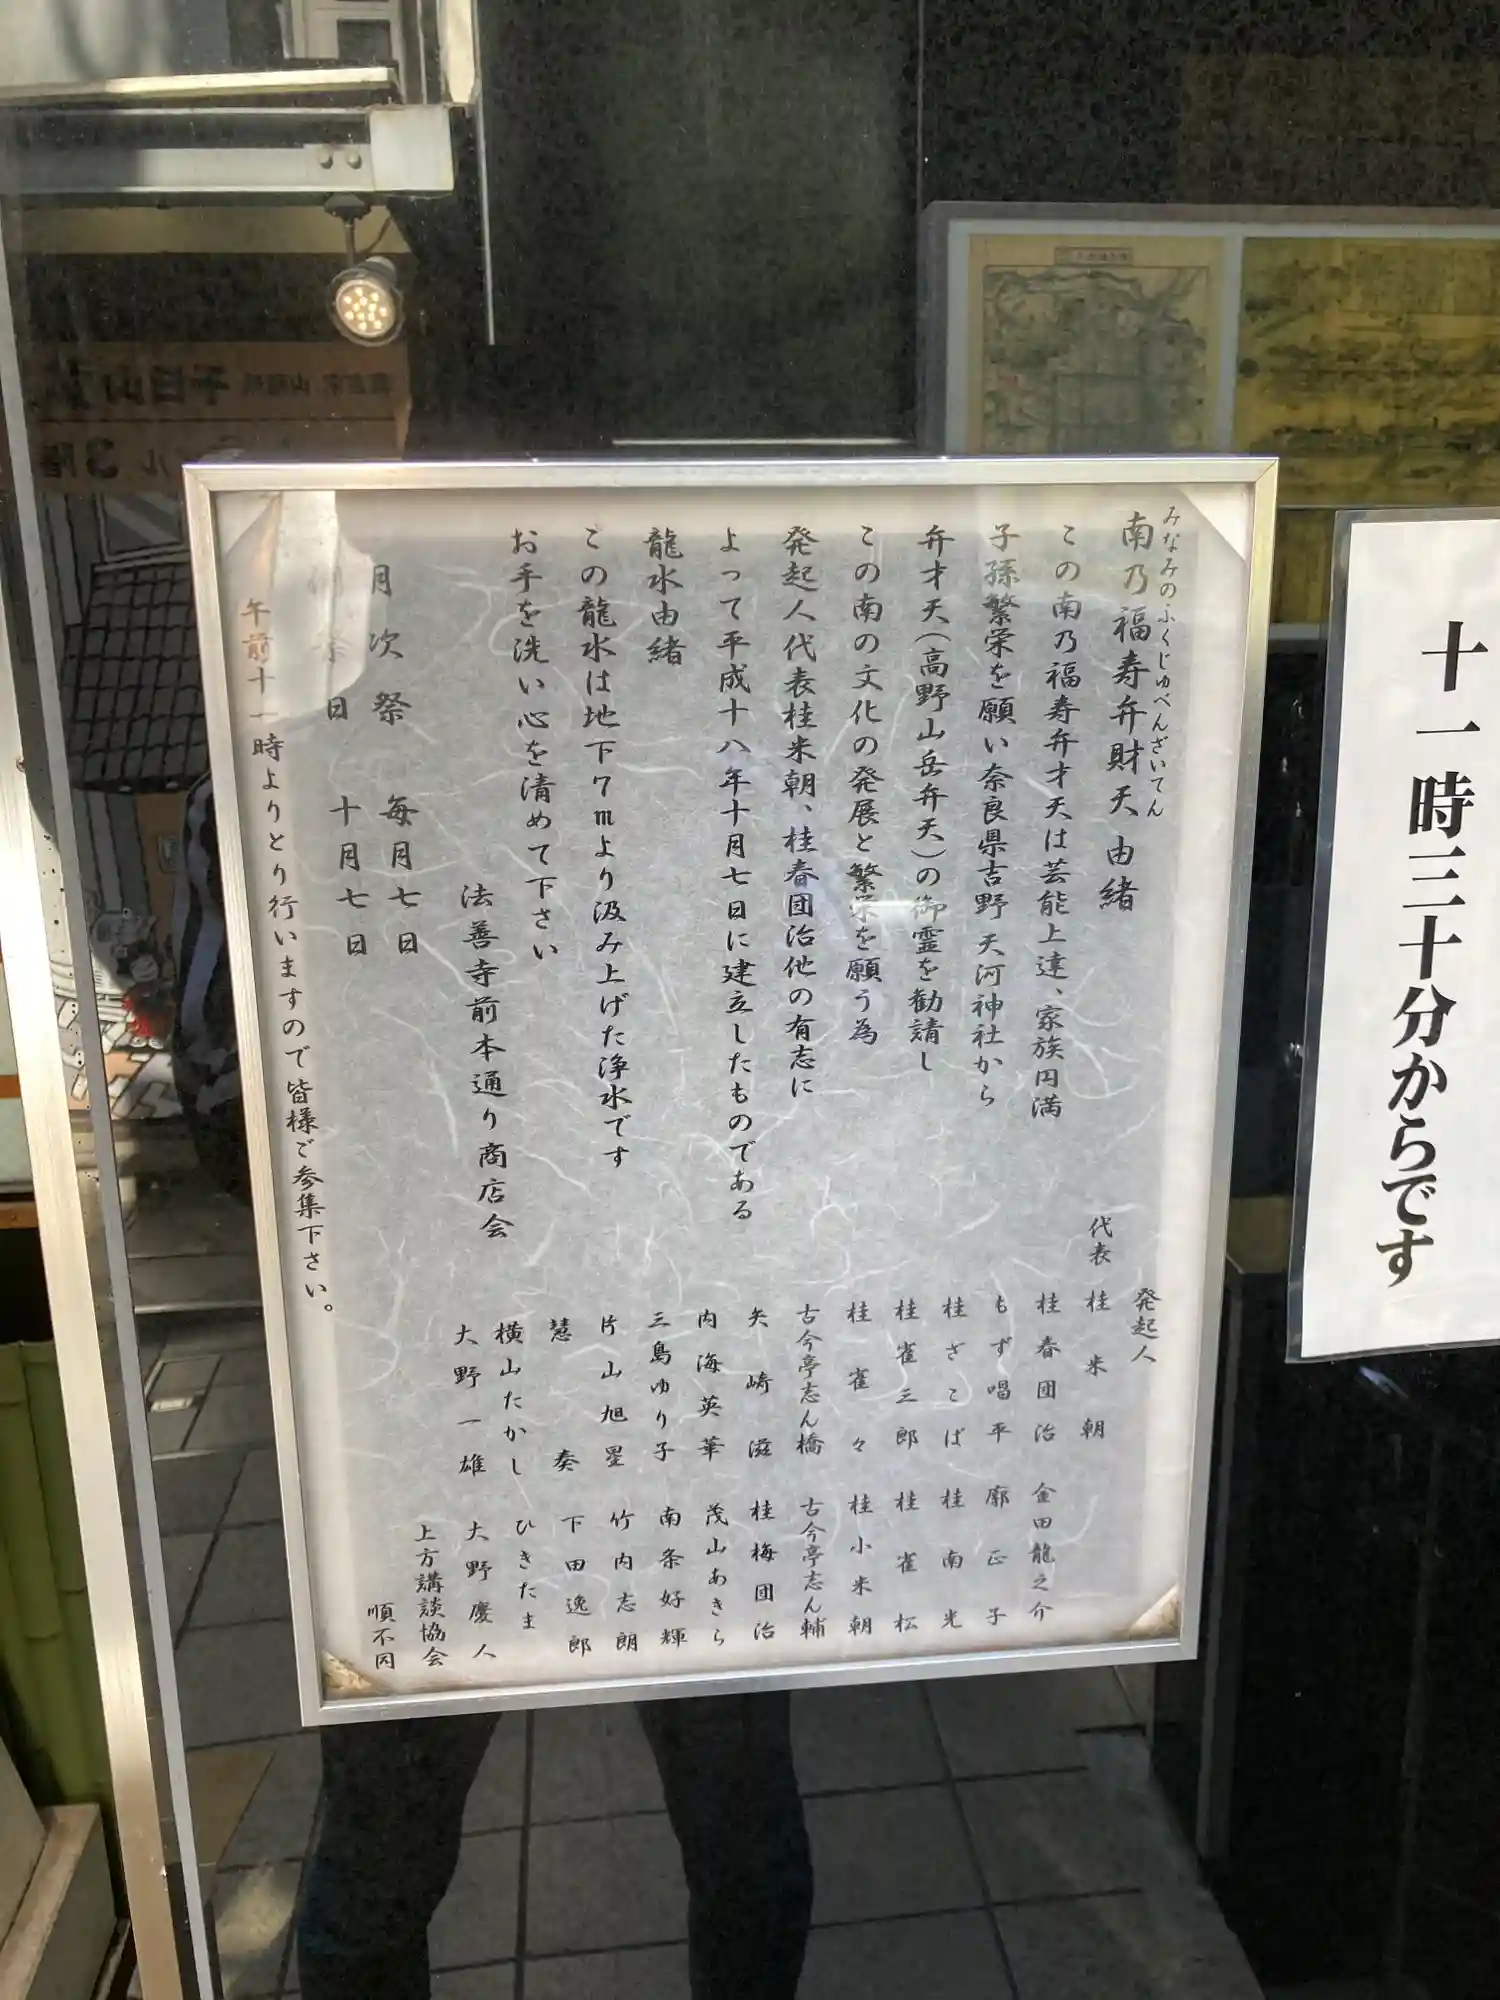 十一時三十分からです
みなみのふくじゅべんざいてん
南乃福寿弁財天由緒
この南乃福寿弁才天は芸能上達、家族円満
子孫繁栄を願い奈良県吉野天河神社から
弁才天(高野山岳弁天)の御霊を勧請し
この南の文化の発展と繁栄を願う為
発起人代表桂米朝、桂春団治他の有志に
よって平成十八年十月七日に建立したものである
龍水由緒
この龍水は地下7mより汲み上げた浄水です
お手を洗い心を清めて下さい
法善寺前本通り商店会
月次祭 毎月七日
祭日 十月七日
午前十一時よりとり行いますので皆様ご参集下さい。
発起人
代表 桂米朝
桂春団治 金田龍之介
もず唱平 廓正子
桂ざこば 桂南光
桂雀三郎 桂雀松
桂雀々 桂小米朝
古今亭志ん橋 古今亭志ん輔
矢崎滋 桂梅団治
内海英華 茂山あきら
三島ゆり子 南条好輝
片山旭星 竹内志朗
慧奏 下田逸郎
横山たかし ひきたま
大野一雄 大野慶人
上方講談協会
順不同
3階